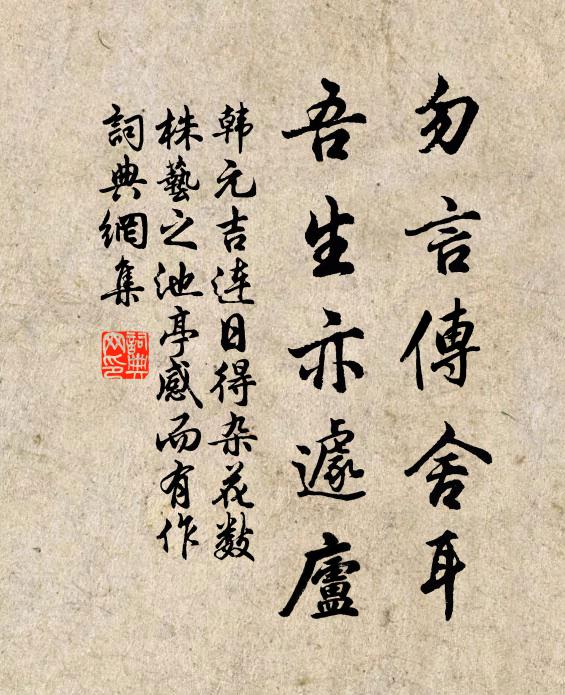 勿言傳舍耳
吾生亦遽廬
韩元吉连日得杂花數
株藝之池亭感而有作
詞典網集
詞典
网印